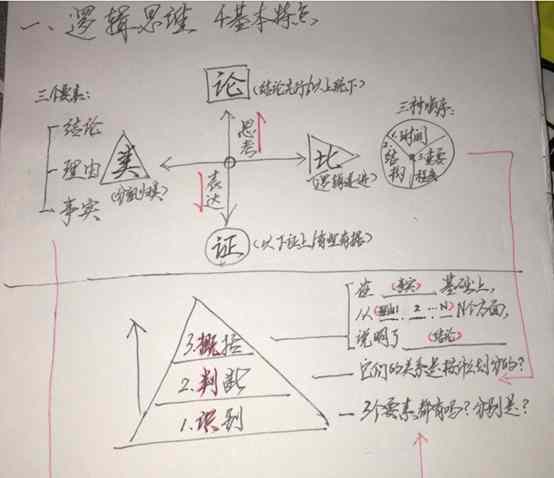 一、逻辑思维 4基本特点
论
(结论先行/以上统下)
三个要素:
结论
理由
事实
类
(分组归类)
思考
表达
比
(逻辑递进)
三种顺序:
1.时间
2.结构
3.重要程度
证
(以下证上/有理有据)
在 (事实) 基础上,
从 (理由1 2 … N) N个方面,
说明了 (结论)
3.概括
它们的关系是按什么划分的?
2.判断
3个要素都有吗?分别是?
1.识别